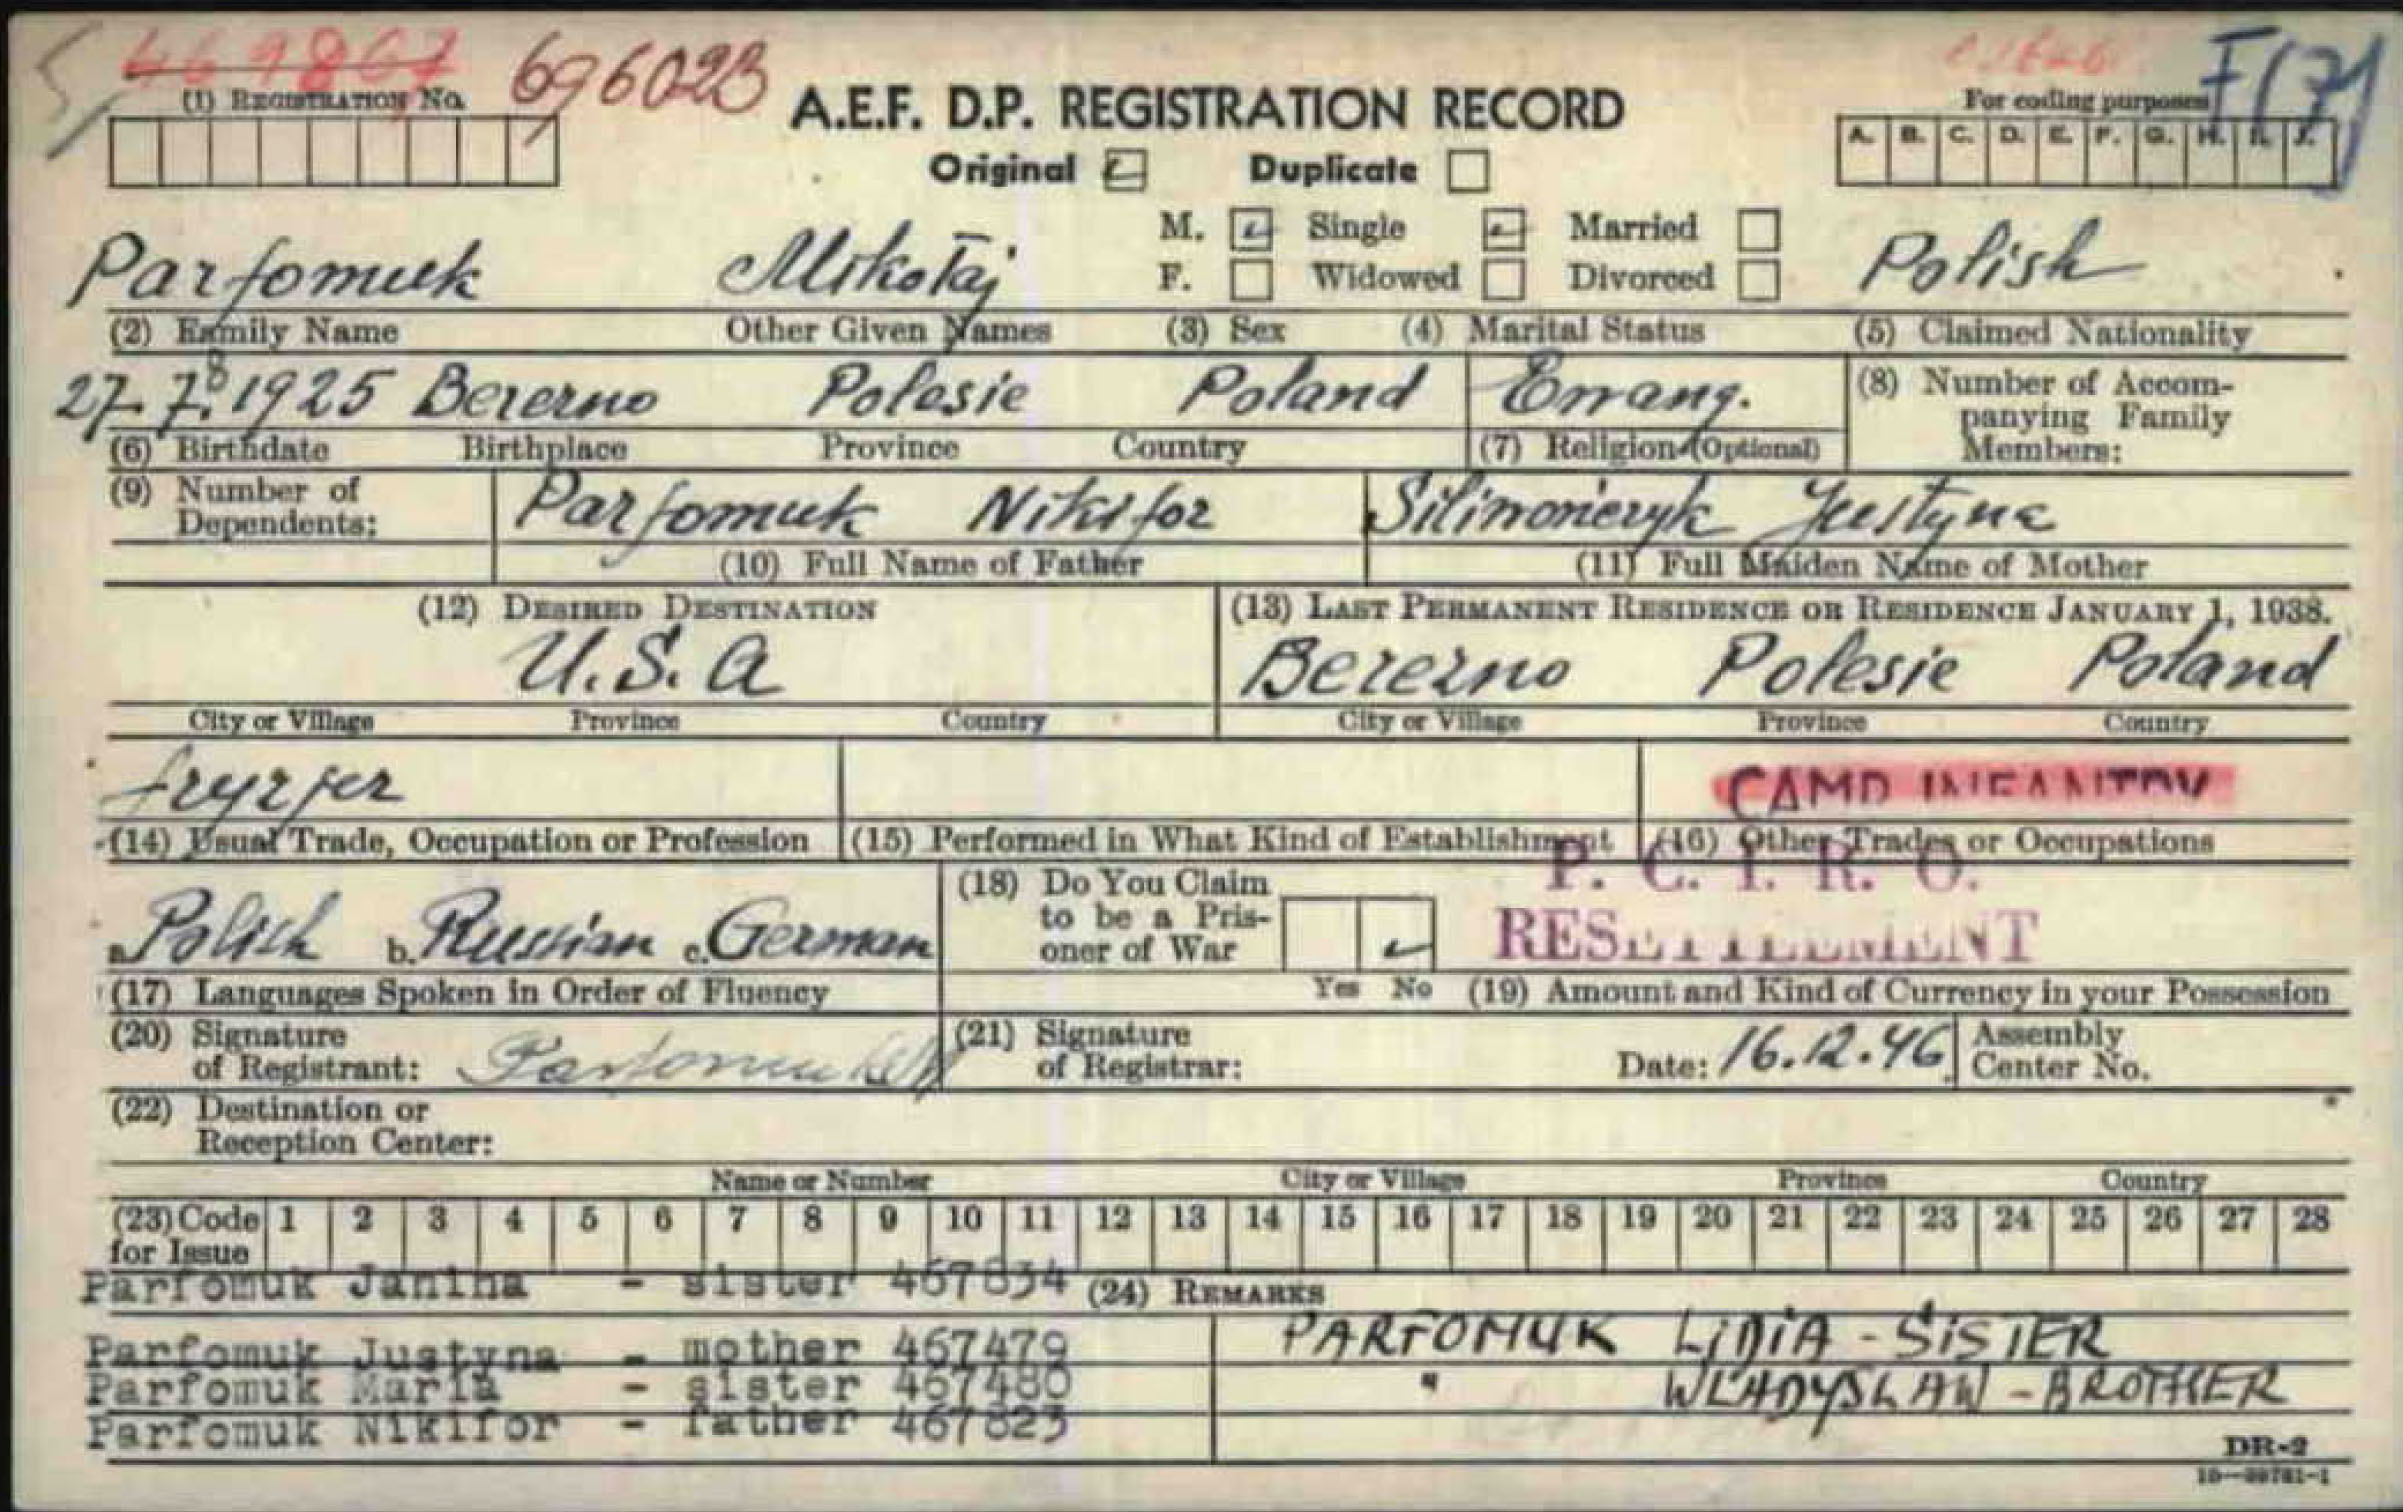 469867 696023
(1) REGISTRATION NO.
A.E.F. D.P. REGISTRATION RECORD
For coding purposes F(7)
A. B. C. D. E. F. G. H. I. J.
Original Duplicate
M. Single Married
Parfomuk Mikołaj F. Widowed Divorced Polish
(2) Family Name Other Given Names (3) Sex (4) Marital Status (5) Claimed Nationality
27.7.8.1925 Berezno Polesie Poland Ewang. (8) Number of Accom-
panying Family
Members:
(6) Birthdate Birthplace Province Country (7) Religion (Optional)
(9) Number of
Dependents:
Parfomuk Nikifor Silimoniczyk Justyna
(10) Full Name of Father (11) Full Maiden Name of Mother
(12) DESIRED DESTINATION (13) LAST PERMANENT RESIDENCE OR RESIDENCE JANUARY 1, 1938.
U.S.A Berezno Polesie Poland
City or Village Province Country City or Village Province Country
fryzjer CAMP INFANTRY
(14) Usual Trade, Occupation or Profession (15) Performed in What Kind of Establishment (16) Other Trades or Occupations
P. C. I. R. O.
RESETTLEMENT
a. Polish b. Russian c. German (18) Do You Claim
to be a Pris-
oner of War
(17) Languages Spoken in Order of Fluency Yes No (19) Amount and Kind of Currency in your Possession
(20) Signature
of Registrant: Parfomuk M
(21) Signature
of Registrar: Date: 16.12.46 Assembly
Center No.
(22) Destination or
Reception Center:
Name or Number City or Village Province Country
(23) Code
for Issue 1 2 3 4 5 6 7 8 9 10 11 12 13 14 15 16 17 18 19 20 21 22 23 24 25 26 27 28
Parfomuk Janina - sister 467834 (24) REMARKS
Parfomuk Justyna - mother 467479 PARFOMUK LIDIA - SISTER
Parfomuk Maria - sister 467480 " WLADYSLAW - BROTHER
Parfomuk Nikifor - father 467823
DR-2
16—39781-1